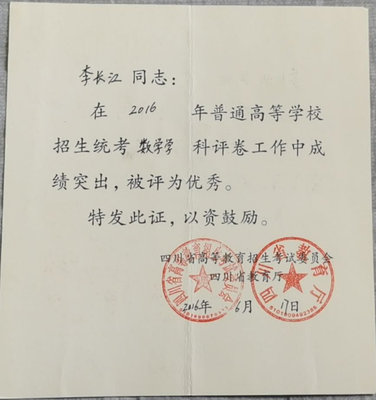 李长江同志：
在 2016 年普通高等学校
招生统考 数学学 科评卷工作中成
绩突出，被评为优秀。
特发此证，以资鼓励。
四川省高等教育招生考试委员会
四川省教育厅
2016年 6月 17日
四川省教育厅